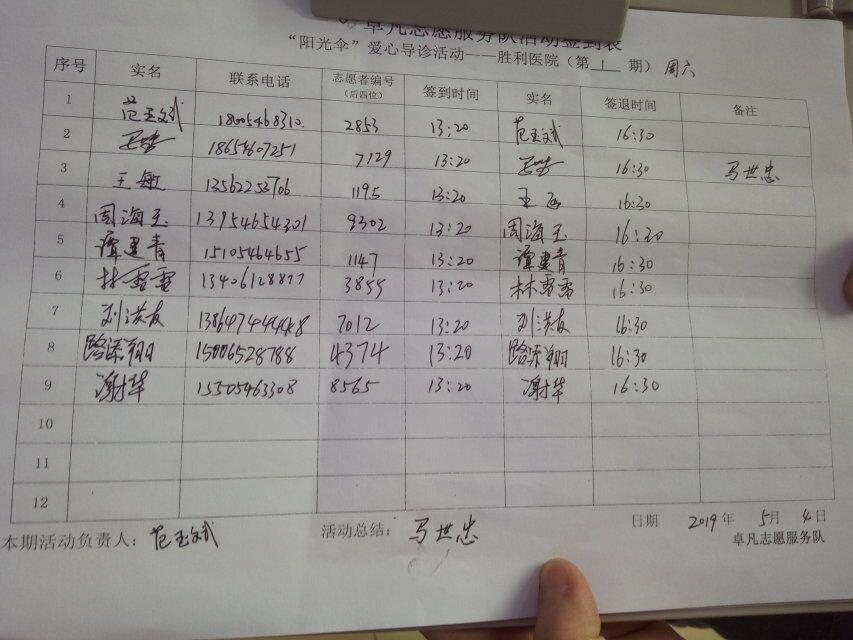 卓凡志愿服务队活动签到表
“阳光伞”爱心导诊活动——胜利医院（第 1 期） 周六
序号 实名 联系电话 志愿者编号（后四位） 签到时间 实名 签退时间 备注
1 范玉斌 18005468310. 2853 13:20 范玉斌 16:30
2 18654607251 7129 13:20 16:30 马世忠
3 王敏 13562253706 1195 13:20 王 16:30
4 周海玉 13954654301 9302 13:20 周海玉 16:30
5 谭建青 15105464655 1147 13:20 谭建青 16:30
6 林雪雪 13406128877 3855 13:20 林雪雪 16:30
7 刘洪友 13864744448 7012 13:20 刘洪友 16:30
8 路添翔 15006528788 4374 13:20 路添翔 16:30
9 谢华 15505463308 8565 13:20 谢华 16:30
10
11
12
本期活动负责人：范玉斌 活动总结：马世忠 日期 2019年 5月 4日
卓凡志愿服务队